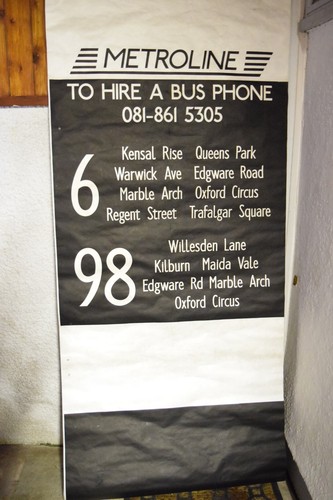 METROLINE
TO HIRE A BUS PHONE
081-861 5305
6
Kensal Rise Queens Park
Warwick Ave Edgware Road
Marble Arch Oxford Circus
Regent Street Trafalgar Square
98
Willesden Lane
Kilburn Maida Vale
Edgware Rd Marble Arch
Oxford Circus